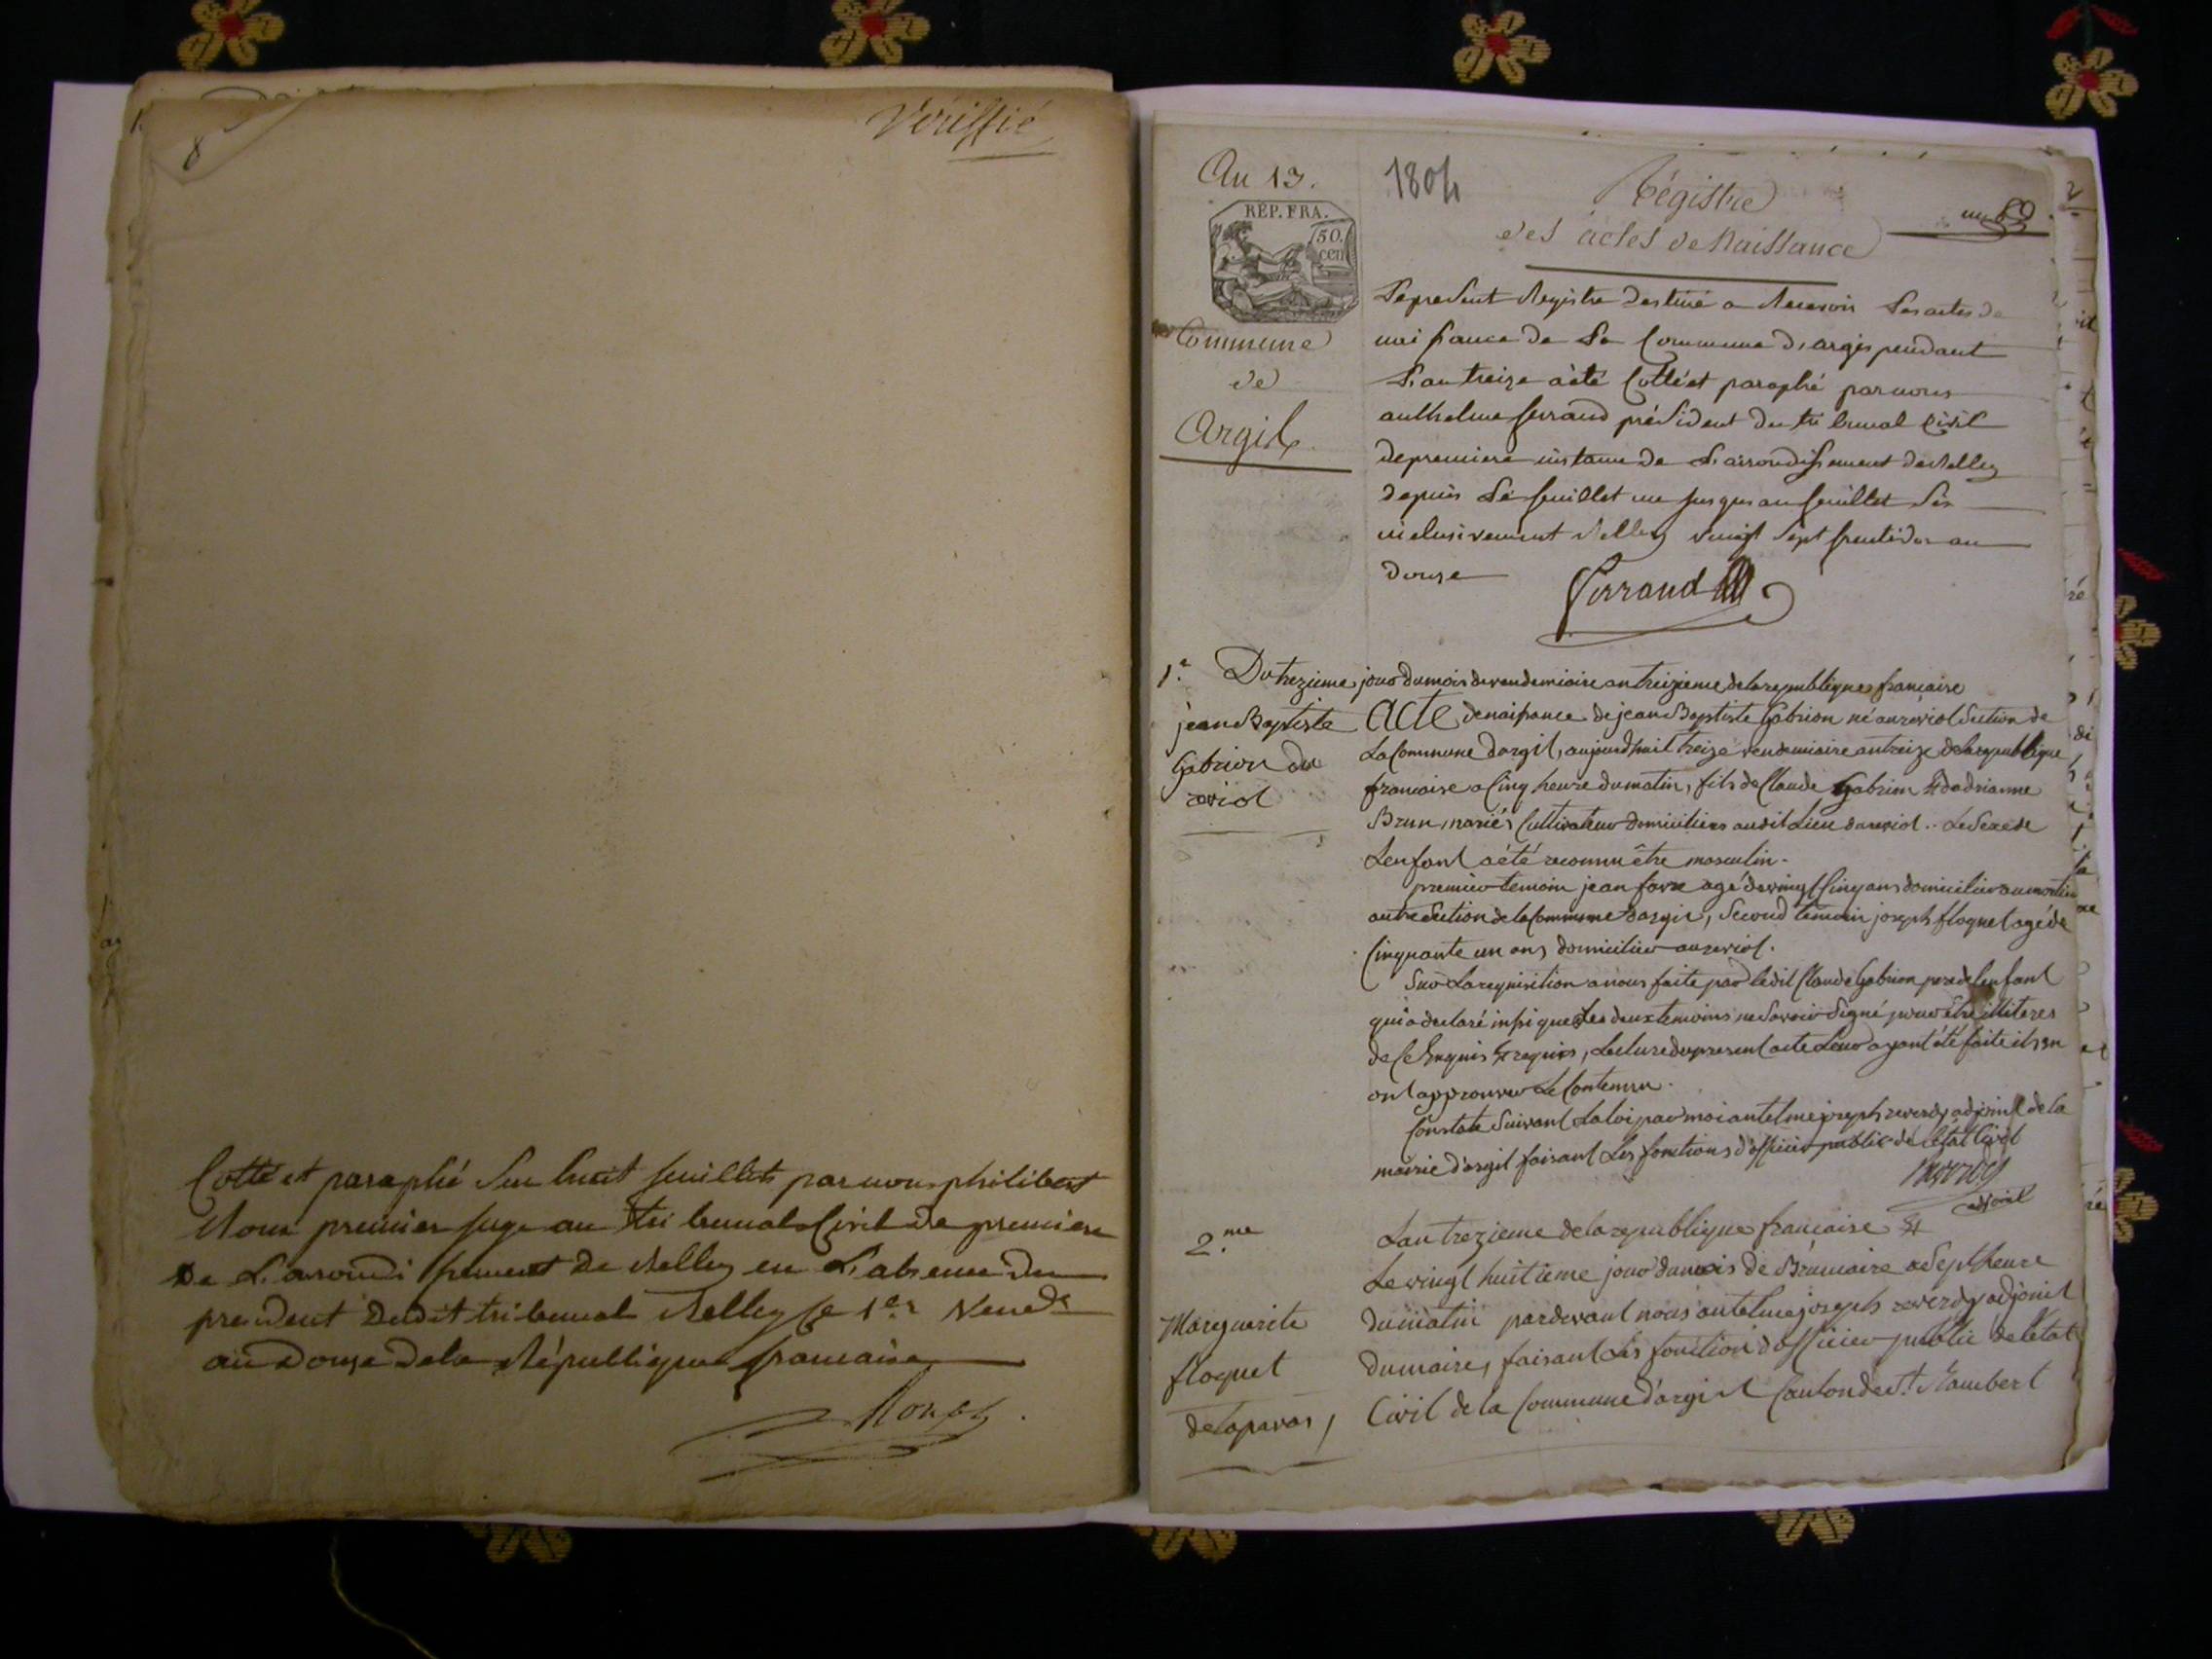 8
Vériffié
Cotté et paraphé Sur huit feuillets par nous philibert
premier juge au tribunal Civil de premiere
De L'arondissement De Belley en L'absence Du
president Dudit tribunal Belley le 1er Vend.re
an Douze De la République française
An 13.
1804
Régistre
des actes de Naissance
un
2
REP. FRA.
50.
cen
Commune
de
Argil
Le present Registre destiné a Recevoir Les actes de
naissance de La Commune d'argis pendant
L'an treize a été Cotté et paraphé par nous
anthelme ferrand président du tribunal Civil
de premiere instance de L'arrondissement de Belley
depuis Le feuillet un jusques au feuillet Six
inclusivement Belley vingt Sept fructidor an
douze
Ferrand
1.e Du trezieme jour du mois de vendemiaire an treizieme de la republique francaise
jean Baptiste
Gabrion du
reviol
Acte de naissance de jean Baptiste Gabrion né au reviol Section de
La Commune d'argil, aujourdhuit treize vendemiaire an treize de la republique
francaise a Cinq heure du matin, fils de Claude Gabrion & dadrianne
Brun, mariés Cultivateur domiciliers audit Lieu dureviol.. Le Sexe de
Lenfant a été reconnu être masculin.
premier temoin jean favre agé de vingt Cinq ans domicilier au
autre Section de la Commune dargis, Second temoin joseph floquet agé de
Cinquante un ans domicilier au reviol.
Sur La requisition a nous faite par ledit Claude Gabrion pere de lenfant
qui a declaré insi que Les deux temoins ne Savoir Signé pour être illiteres
de Ce Enquis & requis, Lecture du present acte Leur ayant été faite ils en
ont approuver Le Contenu.
Constaté Suivant La loi par moi antelme joseph reverdy adjoint de la
mairie d'argil faisant Les fonctions d'officier public de Létat Civil
reverdy
adjoint
2.me
Marguerite
floquet
delaparas,
Lan trezieme de la republique francaise &
Le vingt huitieme jour du mois de Brumaire a Sept heure
du matin pardevant nous antelme joseph reverdy adjoint
du maire, faisant Les fonction d'officier public de Létat
Civil de la Commune d'argil Canton de St. Rambert